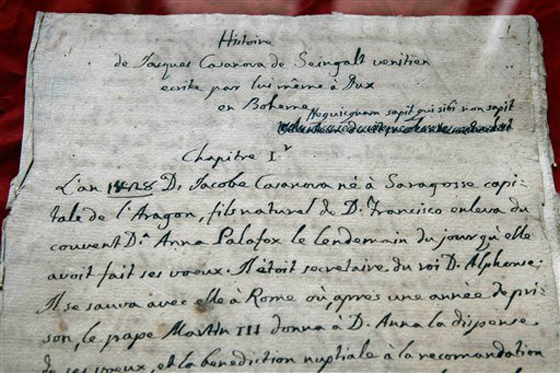 1
Histoire
de Jacques Casanova de Seingalt venitien
ecrite par lui même à Dux
en Boheme
Nequicquam sapit qui sibi non sapit
Chapitre Ir
L'an 1428 D. Jacobe Casanova né à Saragosse capi-
tale de l'Aragon, fils naturel de D. Francisco enleva du
couvent D.a Anna Palafox le lendemain du jour qu'elle
avoit fait ses voeux. Il étoit secretaire du roi D. Alphonse.
Il se sauva avec elle à Rome où, apres une année de pri-
son, le pape Martin III donna à D. Anna la dispense
de ses voeux, et la benediction nuptiale à la recomandation